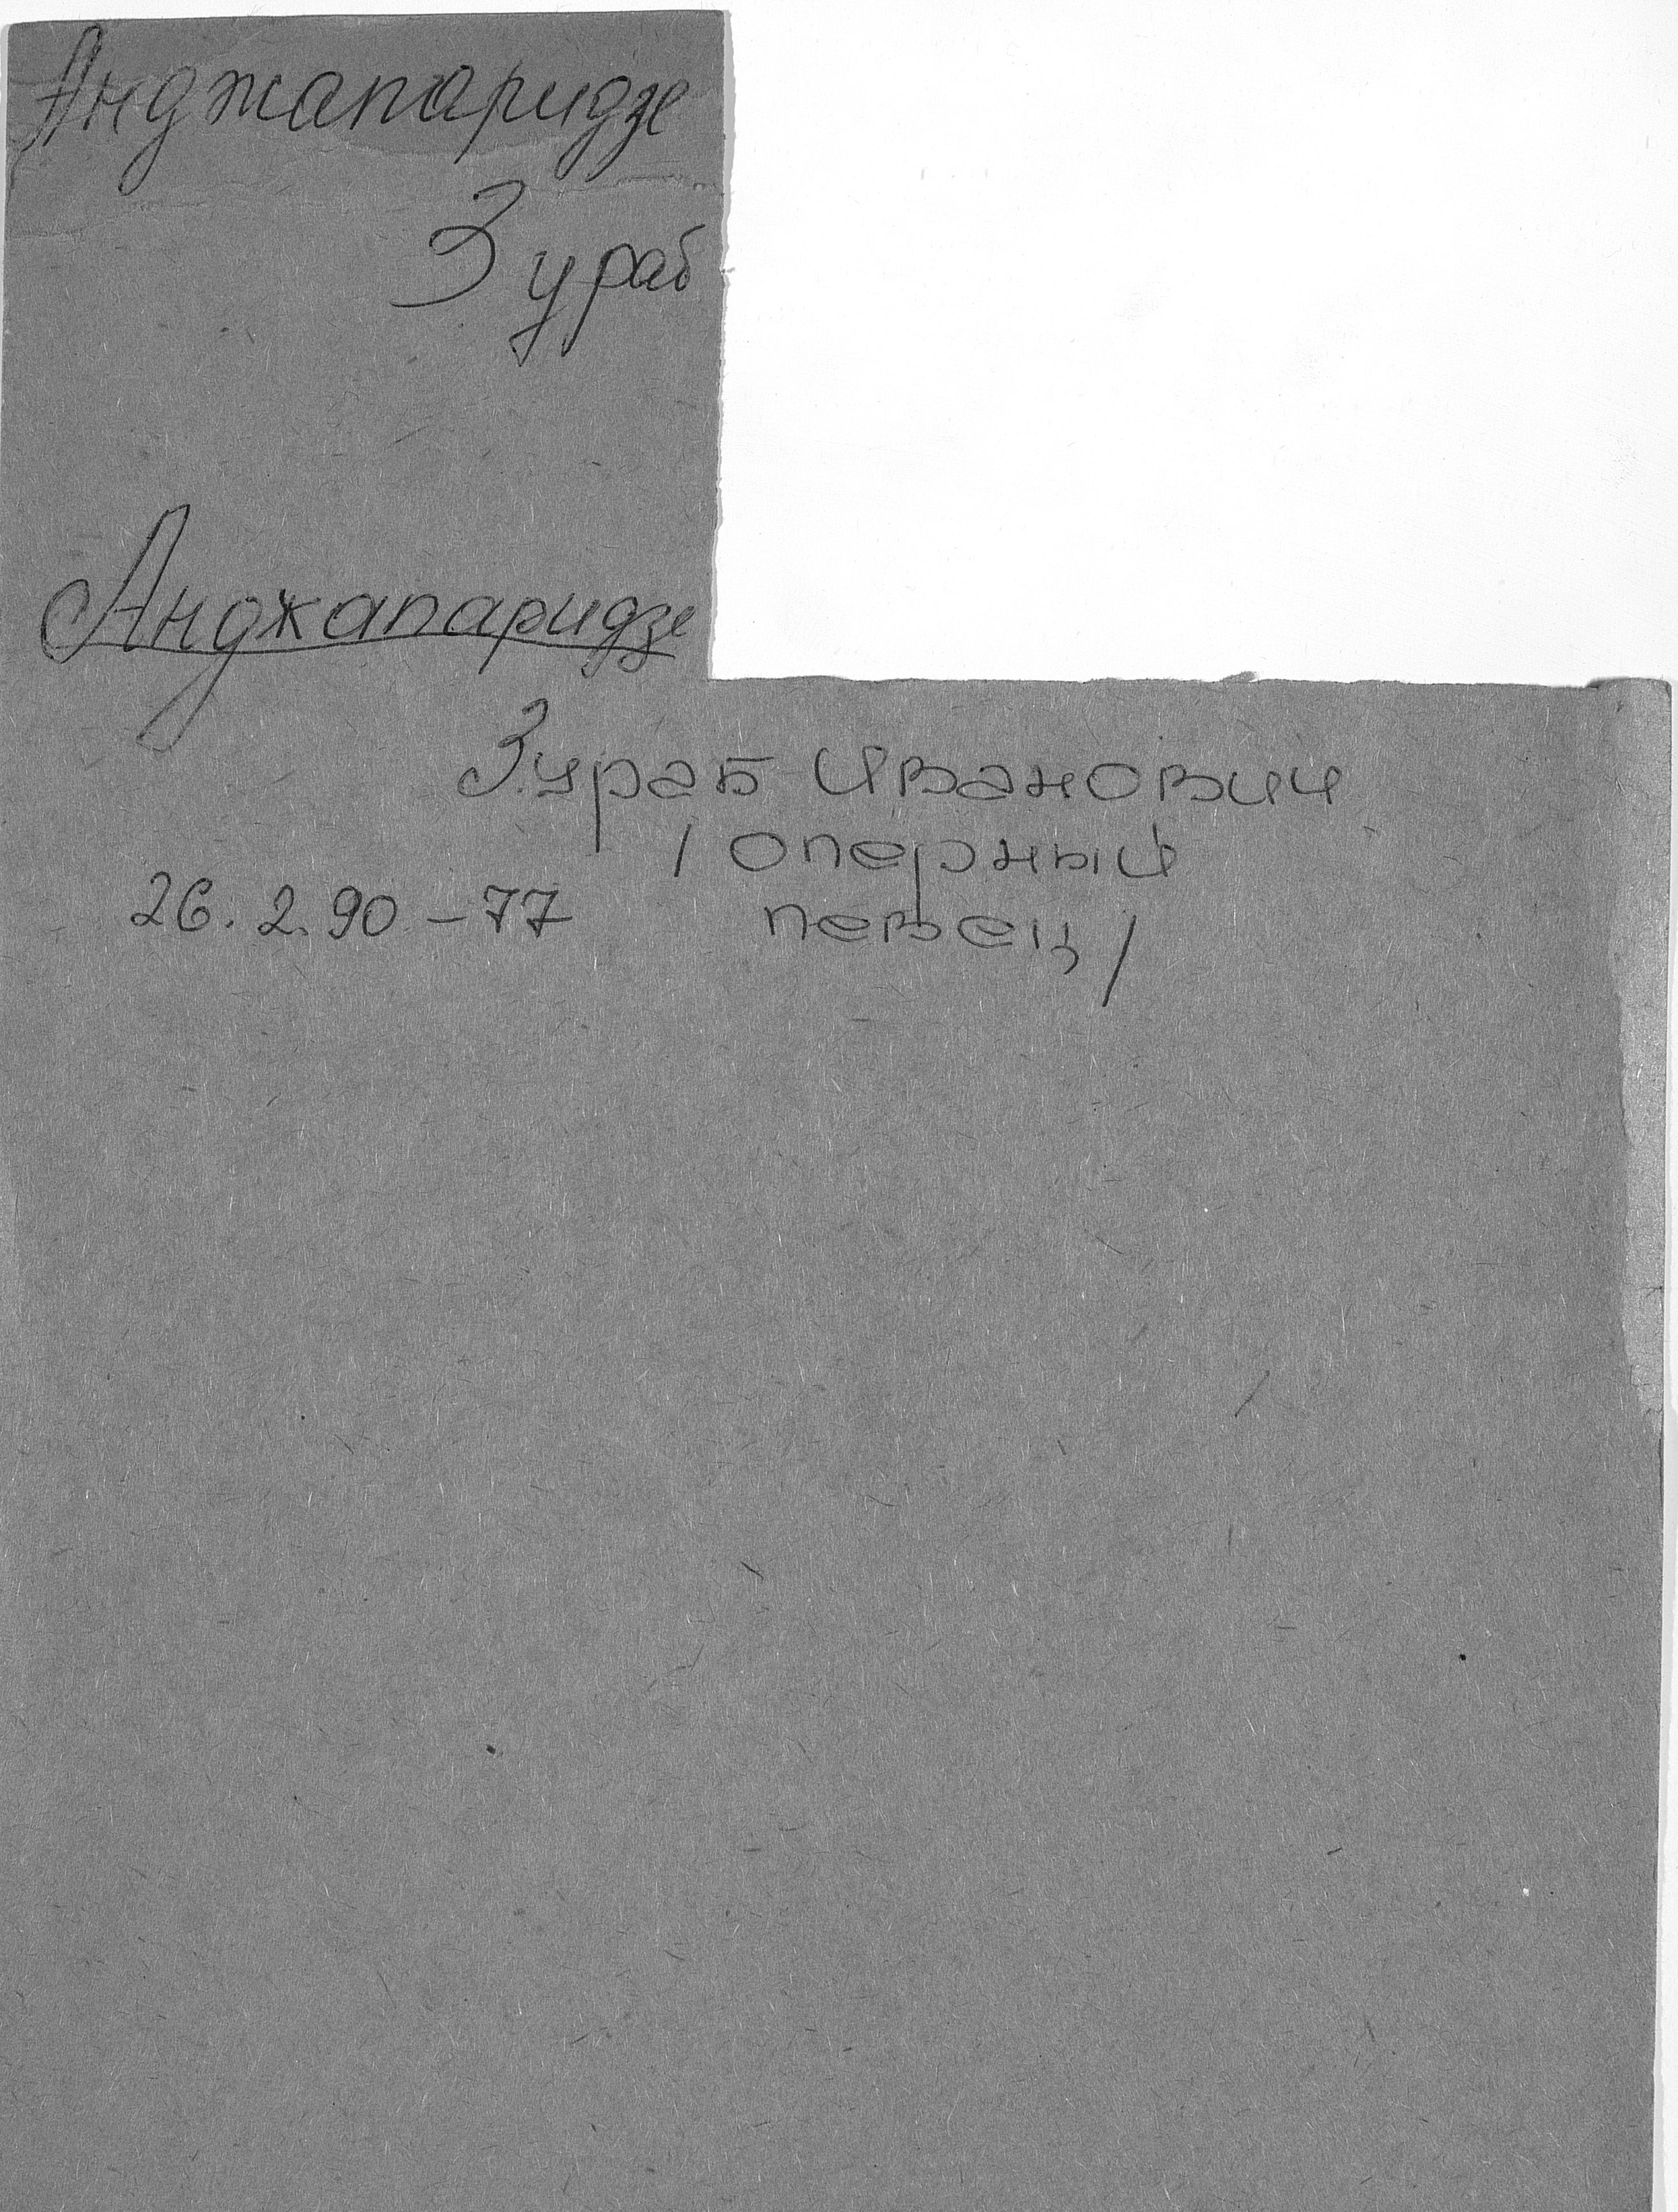 Анджапаридзе
Зураб
Анджапаридзе
Зураб Иванович
/ оперный
26.2.90 – 77
певец /